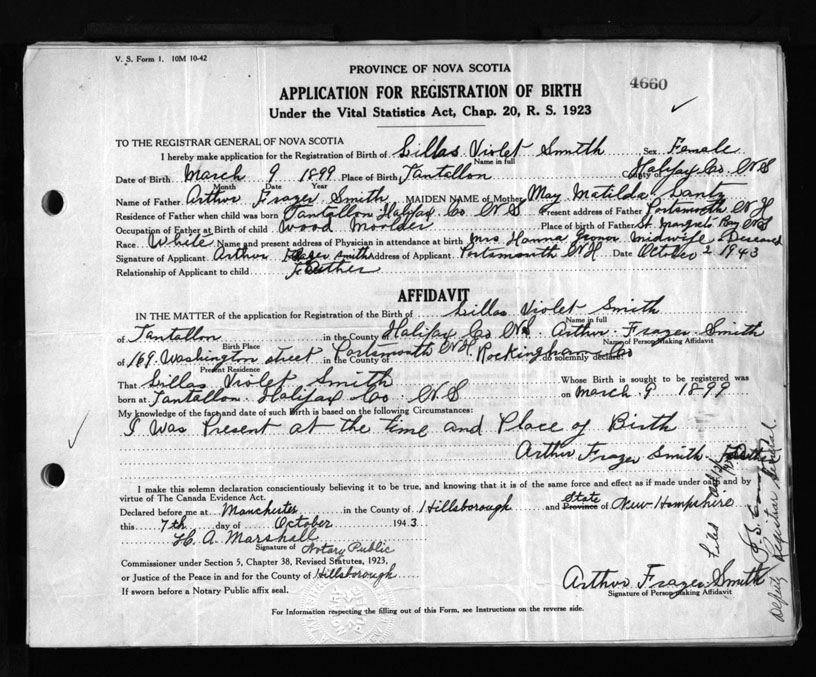 V. S. Form 1. 10M 10-42
PROVINCE OF NOVA SCOTIA
4660
APPLICATION FOR REGISTRATION OF BIRTH
Under the Vital Statistics Act, Chap. 20, R. S. 1923
TO THE REGISTRAR GENERAL OF NOVA SCOTIA
I hereby make application for the Registration of Birth of Lillas Violet Smith Sex Female
Name in full
Date of Birth March 9 1899 Place of Birth Tantallon County of Halifax Co N S
Month Date Year
Name of Father Arthur Frazer Smith MAIDEN NAME of Mother May Matilda Lantz
Residence of Father when child was born Tantallon Halifax Co N S Present address of Father Portsmouth N H
Occupation of Father at Birth of child Wood Place of birth of Father St Margrets Bay N S
Race White Name and present address of Physician in attendance at birth Mrs Hanna midwife
Signature of Applicant Arthur Frazer Smith Address of Applicant Portsmouth N H Date October 2 1943
Relationship of Applicant to child Father
AFFIDAVIT
IN THE MATTER of the application for Registration of the Birth of Lillas Violet Smith
Name in full
of Tantallon in the County of Halifax Co N S. Arthur Frazer Smith
Birth Place Name of Person Making Affidavit
of 169 Washington street Portsmouth N H in the County of Rockingham Co do solemnly declare:
Present Residence
That Lillas Violet Smith Whose Birth is sought to be registered was
born at Tantallon Halifax Co N S on March 9 1899
My knowledge of the fact and date of such Birth is based on the following Circumstances:
I Was Present at the time and Place of Birth
Arthur Frazer Smith Father
I make this solemn declaration conscientiously believing it to be true, and knowing that it is of the same force and effect as if made under oath and by
virtue of The Canada Evidence Act.
Declared before me at Manchester in the County of Hillsborough and State Province of New-Hampshire
this 7th day of October 1943
H. A. Marshall
Signature of Notary Public
Commissioner under Section 5, Chapter 38, Revised Statutes, 1923,
or Justice of the Peace in and for the County of Hillsborough
If sworn before a Notary Public affix seal.
Arthur Frazer Smith
Signature of Person making Affidavit
For Information respecting the filling out of this Form, see Instructions on the reverse side.
Filed
Deputy Registrar General